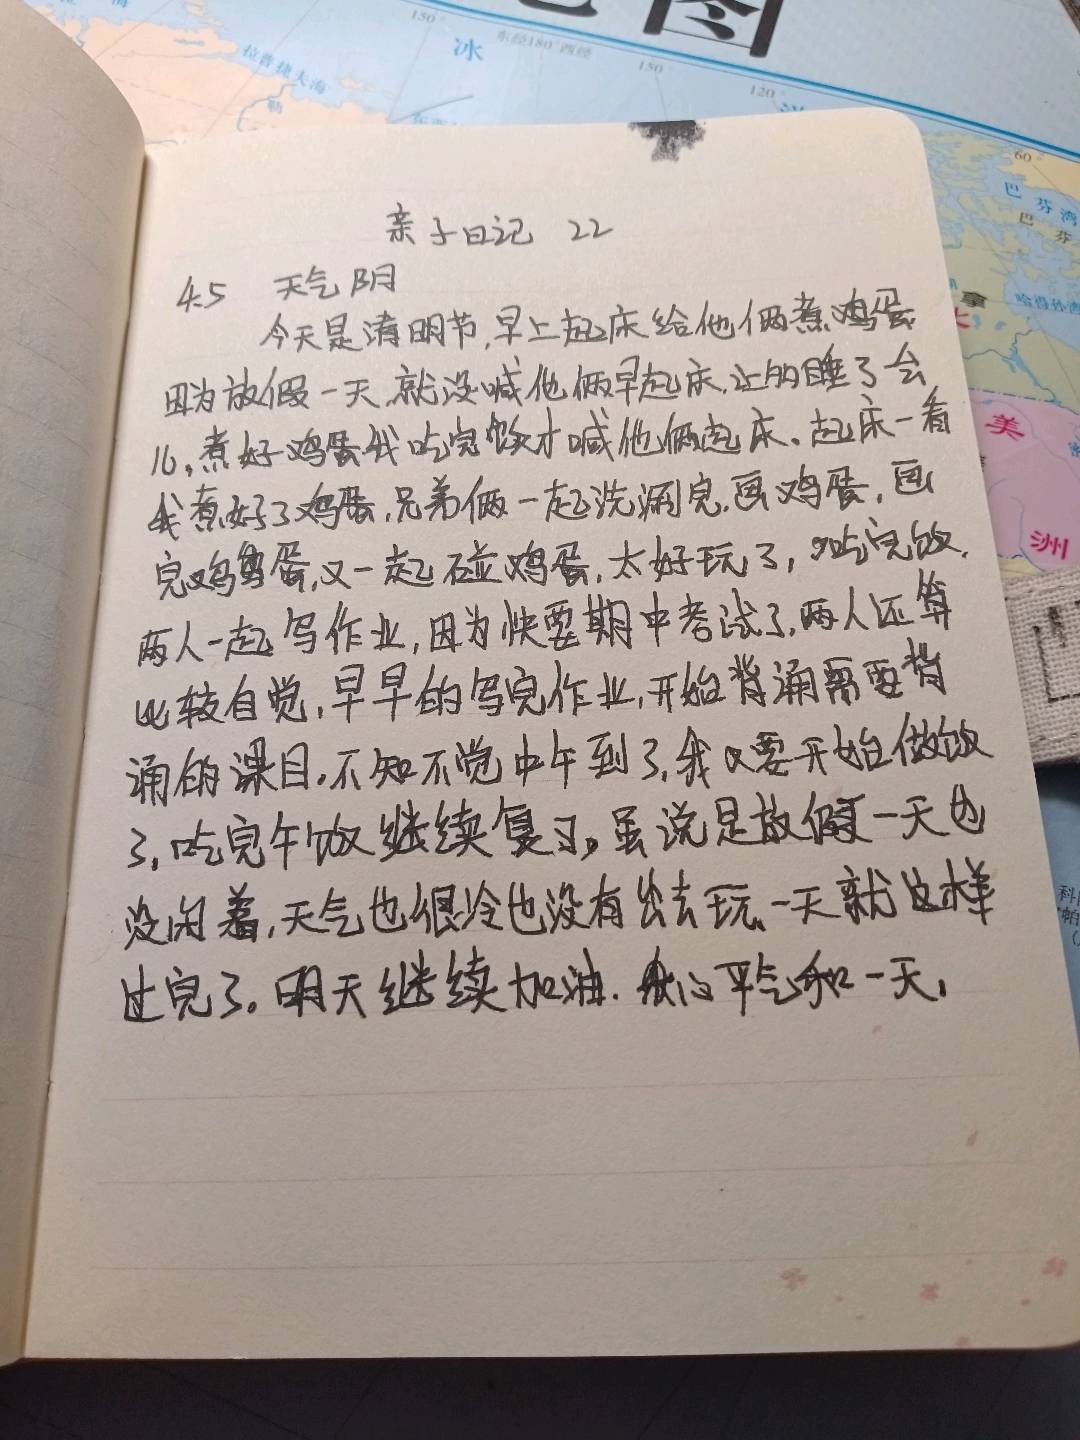 图
冰
150°
东经180°西经
150
120
拉普捷夫海
勒
60°
巴芬湾
巴芬
哈得孙湾
拿
大
美
洲
亲子日记 22
4.5 天气阴
今天是清明节,早上起床给他俩煮鸡蛋
因为放假一天,就没喊他俩早起床,让的睡了会
儿,煮好鸡蛋我吃完饭才喊他俩起床。起床一看
我煮好了鸡蛋,兄弟俩一起洗涮完,画鸡蛋,画
完鸡蛋,又一起碰鸡蛋,太好玩了,吃完饭,
两人一起写作业,因为快要期中考试了,两人还算
比较自觉,早早的写完作业,开始背诵需要背
诵的课目。不知不觉中午到了,我又要开始做饭
了,吃完午饭继续复习。虽说是放假一天也
没闲着,天气也很冷也没有出去玩、一天就这样
过完了。明天继续加油.心平气和一天,